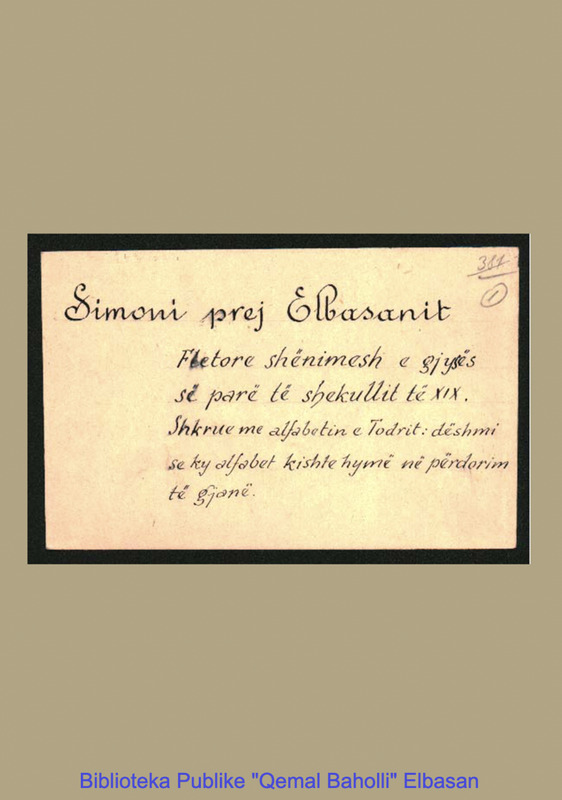 381
1
Simoni prej Elbasanit
Fletore shënimesh e gjysës
së parë të shekullit të XIX.
Shkrue me alfabetin e Todrit: dëshmi
se ky alfabet kishte hymë në përdorim
të gjanë.
Biblioteka Publike "Qemal Baholli" Elbasan